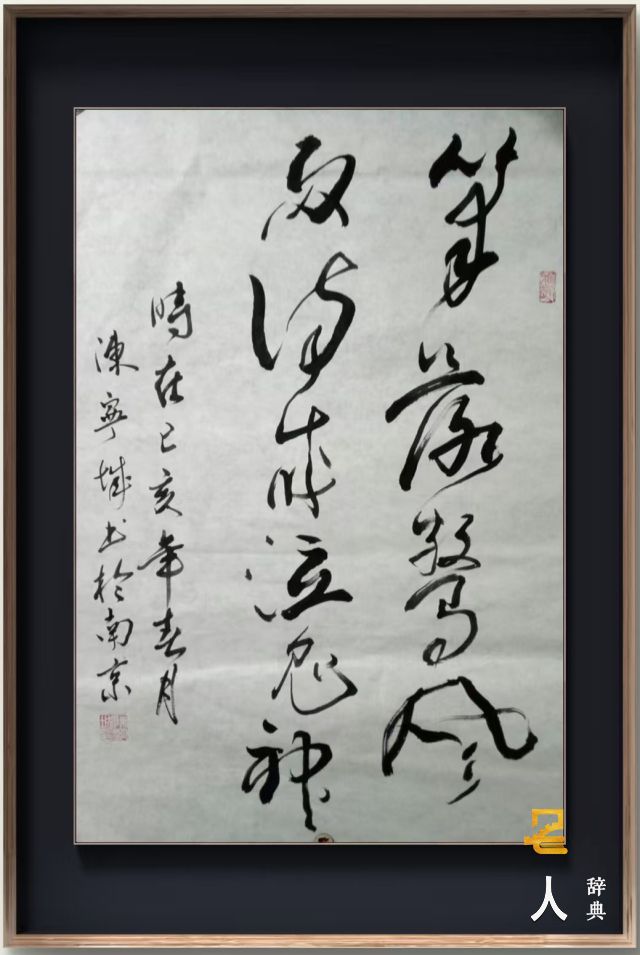 筆落驚風
雨詩成泣鬼神
時在己亥年春月
陳寧城书於南京
名人
辞典